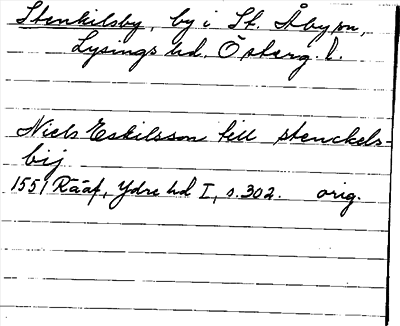 Stenkilsby, by i St. Åby sn,
Lysings hd. Österg. l.
Niels Eskilsson till stenckels-
bij
1551 Rääf, Ydre hd I, s. 302. orig.